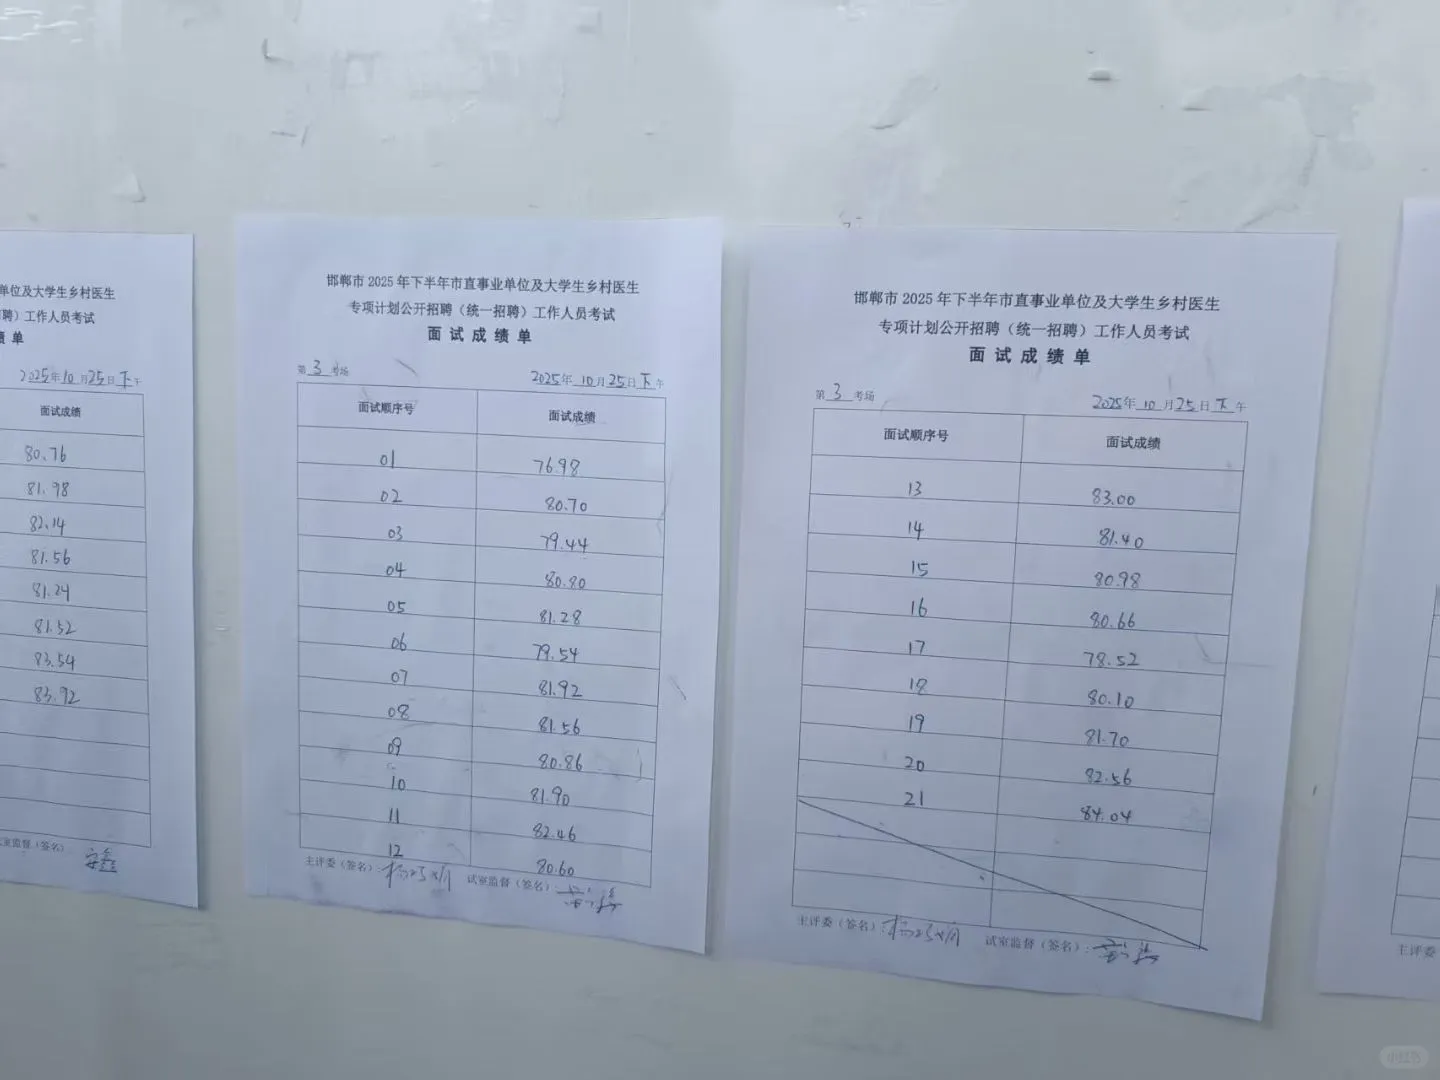 单位及大学生乡村医生
聘）工作人员考试
绩单
2025年10月25日下午
面试成绩
80.76
81.98
82.14
81.56
81.24
81.52
83.54
83.92
室监督（签名）
邯郸市2025年下半年市直事业单位及大学生乡村医生
专项计划公开招聘（统一招聘）工作人员考试
面试成绩单
第3考场 2025年10月25日下午
面试顺序号 面试成绩
01 76.98
02 80.70
03 79.44
04 80.80
05 81.28
06 79.54
07 81.92
08 81.56
09 80.86
10 81.90
11 82.46
12 80.60
主评委（签名）： 试室监督（签名）：
邯郸市2025年下半年市直事业单位及大学生乡村医生
专项计划公开招聘（统一招聘）工作人员考试
面试成绩单
第3考场 2025年10月25日下午
面试顺序号 面试成绩
13 83.00
14 81.40
15 80.98
16 80.66
17 78.52
18 80.10
19 81.70
20 82.56
21 84.04
主评委（签名）： 试室监督（签名）：
主评委
小红书